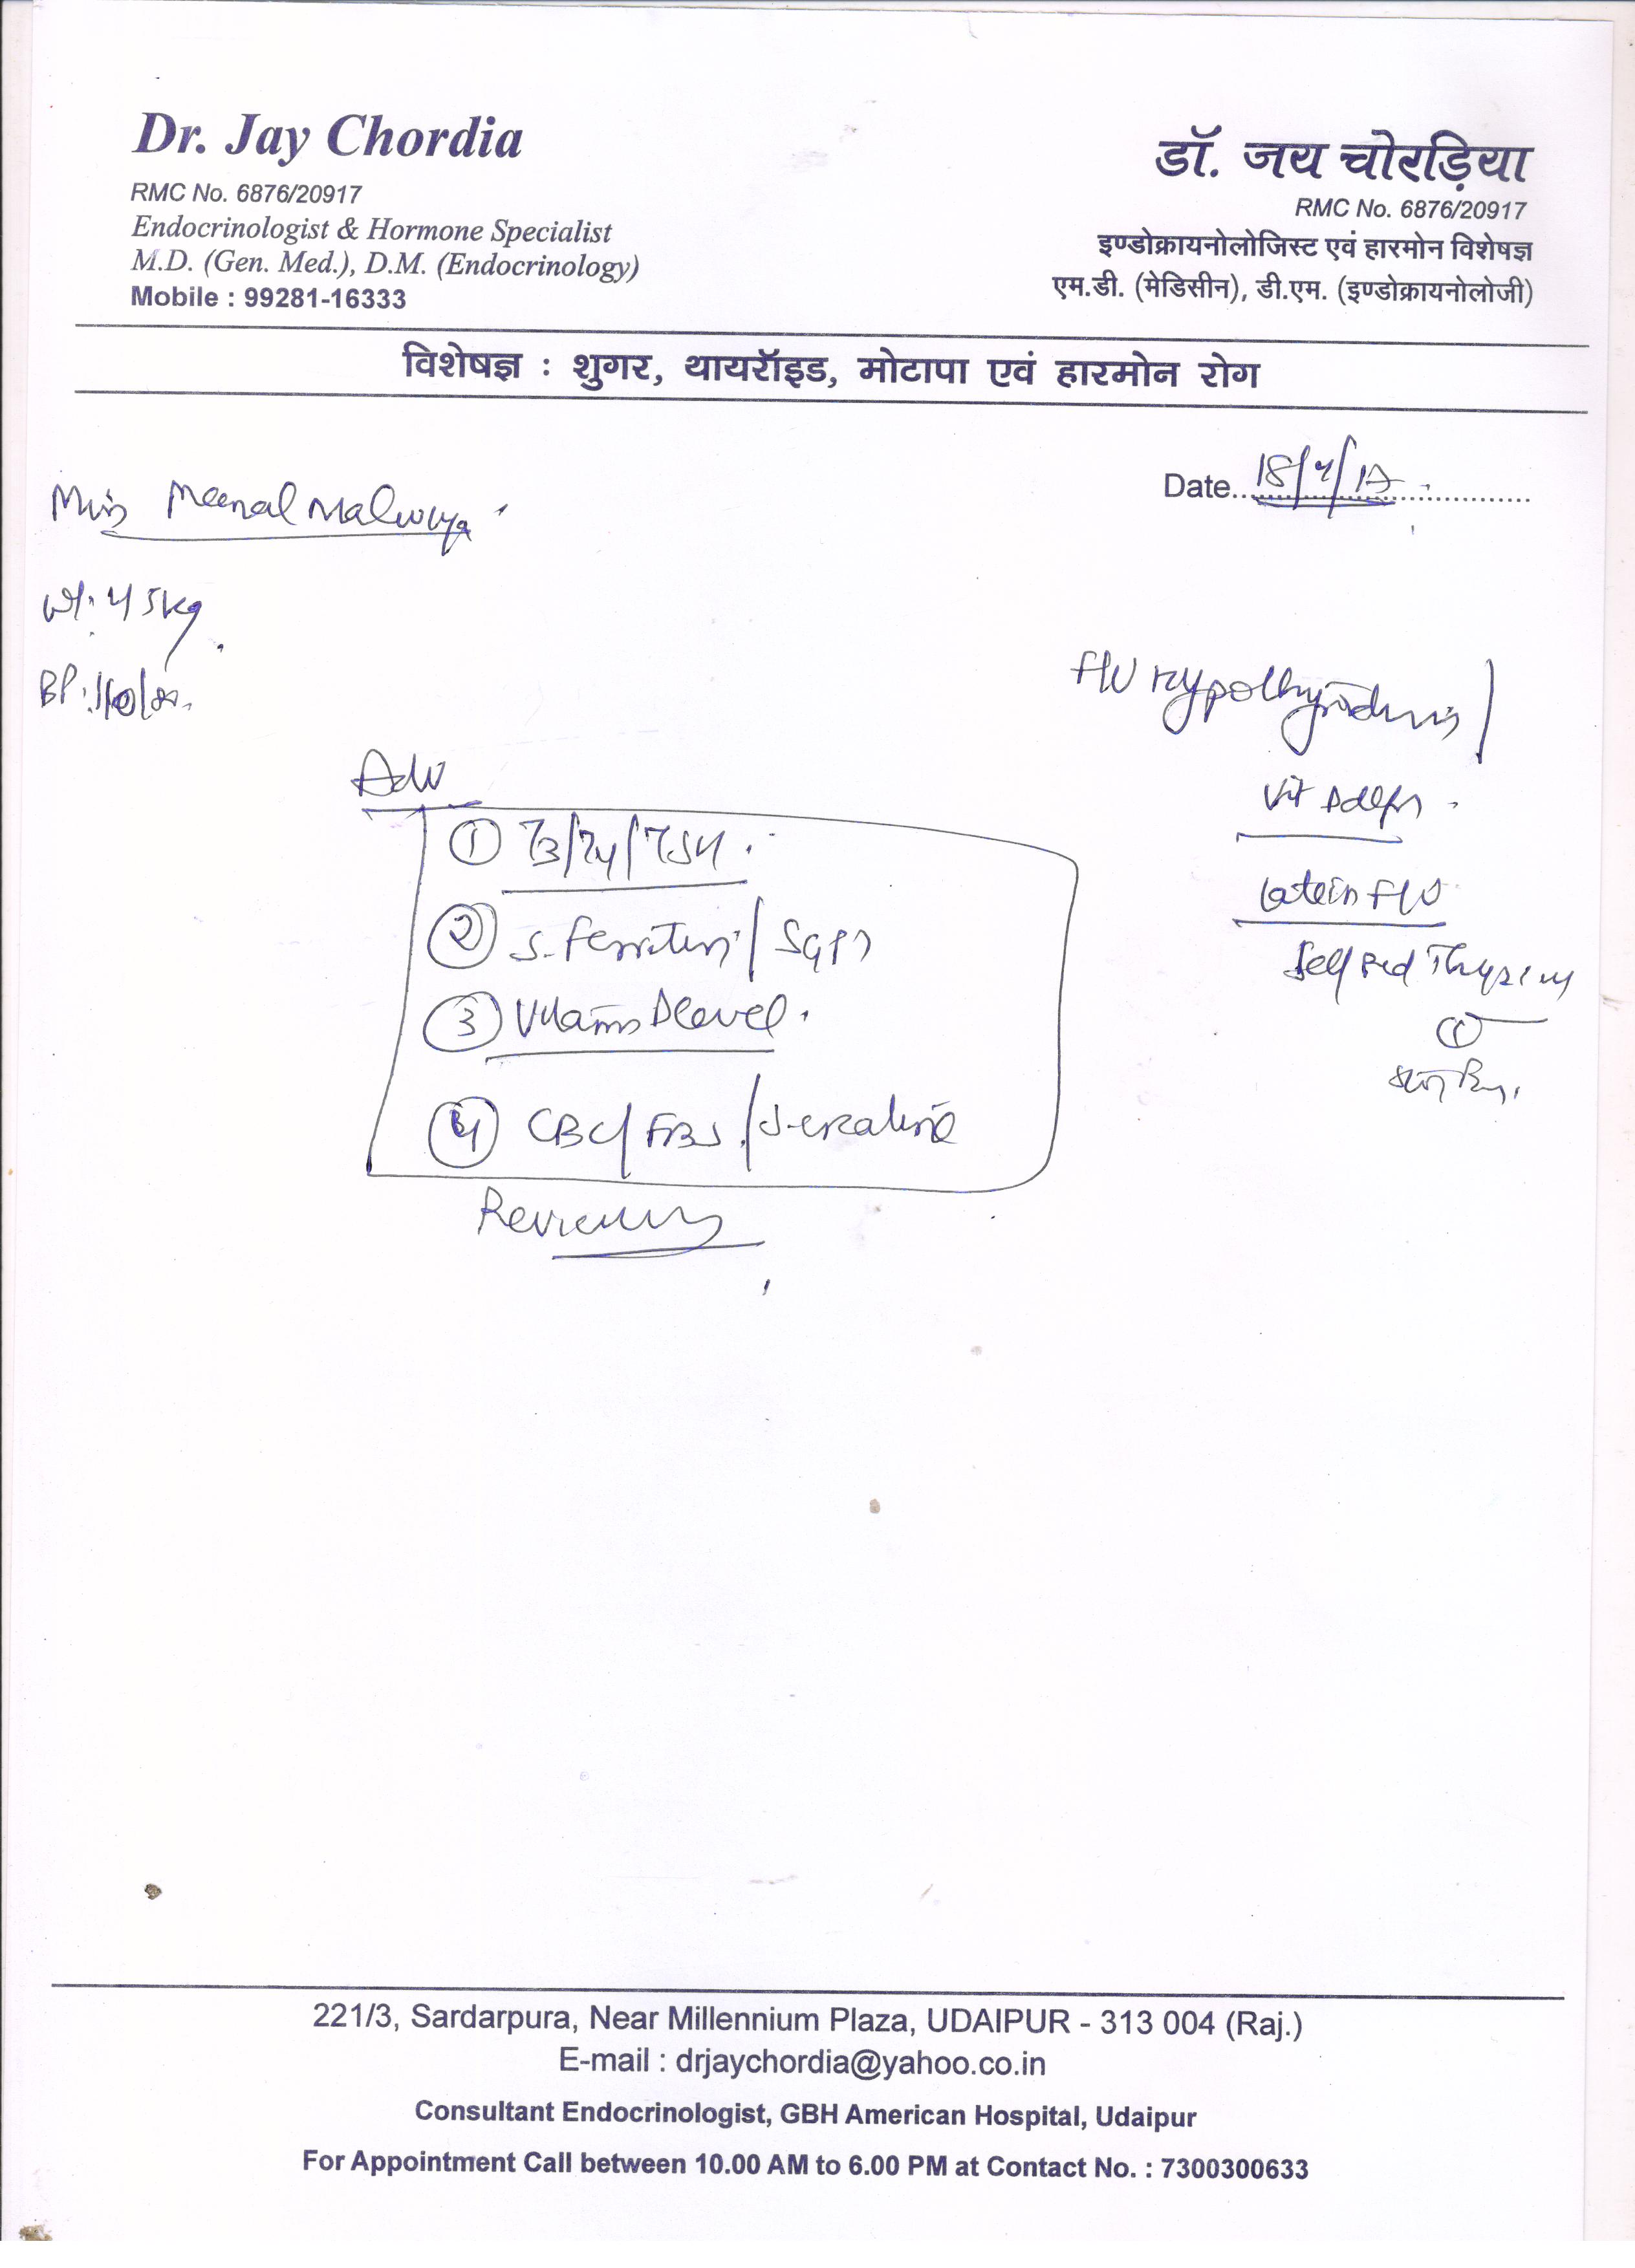 Dr. Jay Chordia
RMC No. 6876/20917
Endocrinologist & Hormone Specialist
M.D. (Gen. Med.), D.M. (Endocrinology)
Mobile : 99281-16333
डॉ. जय चोरड़िया
RMC No. 6876/20917
इण्डोक्रायनोलोजिस्ट एवं हारमोन विशेषज्ञ
एम.डी. (मेडिसीन), डी.एम. (इण्डोक्रायनोलोजी)
विशेषज्ञ : शुगर, थायरॉइड, मोटापा एवं हारमोन रोग
Date 18/4/17
Miss Meenal Malviya
Wt: 45kg
BP:
F/U Hypothyroidism
Vit D
Late in F/U
Self
Adv
① T3/T4/TSH
② S. Ferritin / SGPT
③ Vitamin D level
④ CBC/ FBS / S. creatinine
Review
221/3, Sardarpura, Near Millennium Plaza, UDAIPUR - 313 004 (Raj.)
E-mail : drjaychordia@yahoo.co.in
Consultant Endocrinologist, GBH American Hospital, Udaipur
For Appointment Call between 10.00 AM to 6.00 PM at Contact No. : 7300300633